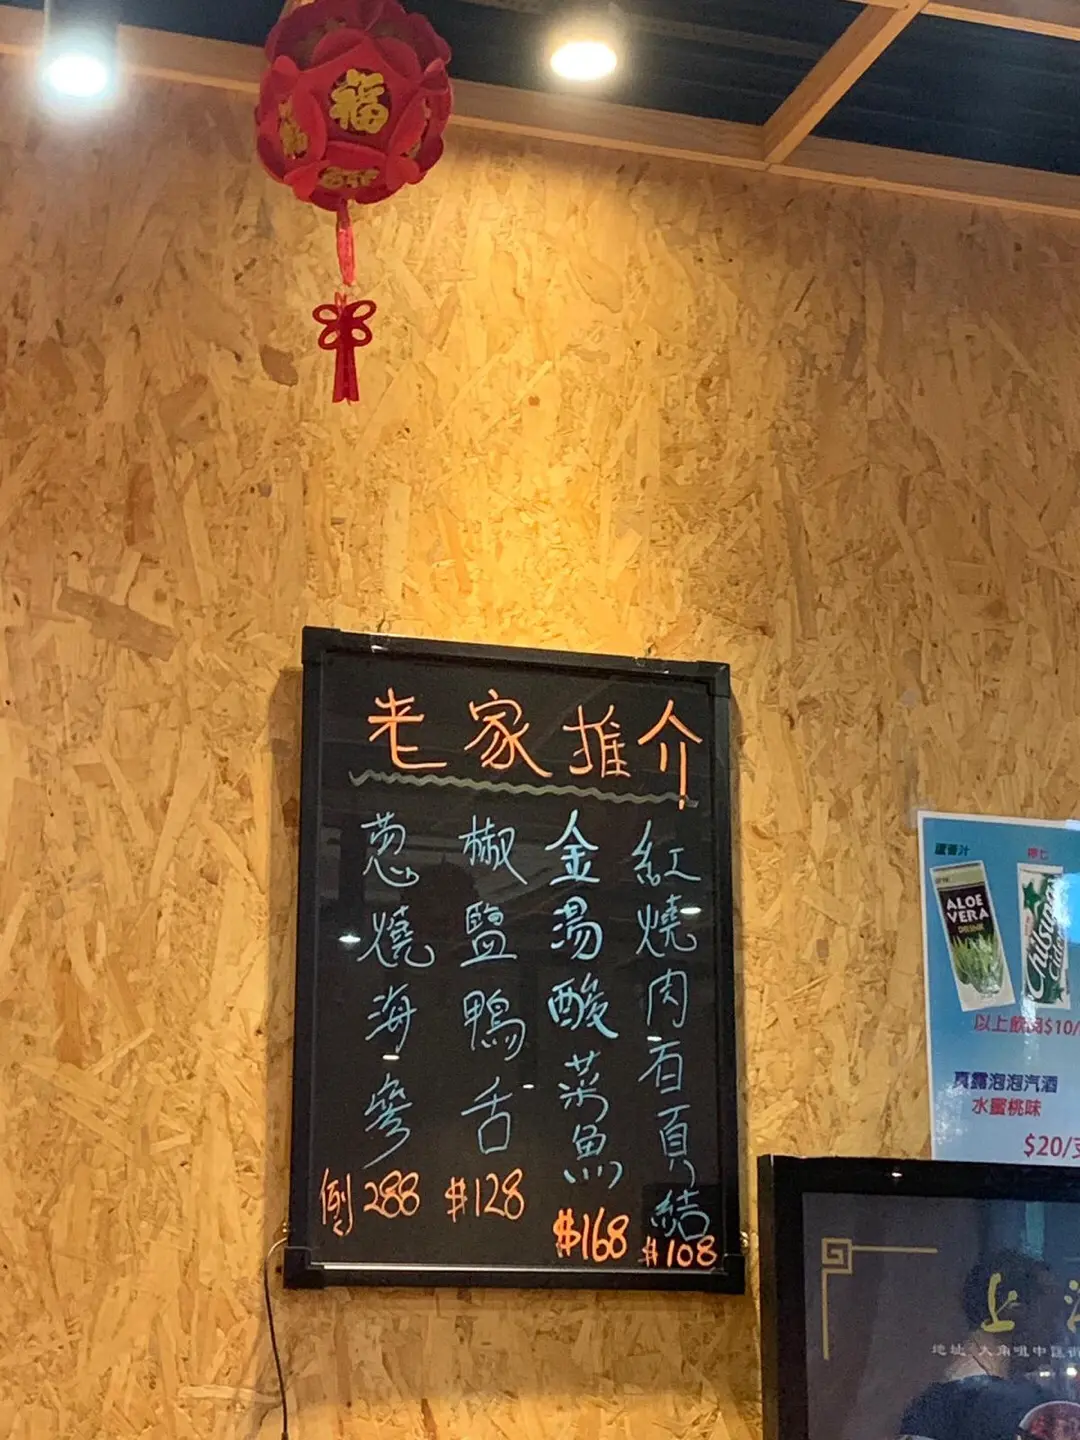 福
老家推介
紅燒肉百頁結
$108
金湯酸菜魚
$168
椒鹽鴨舌
$128
葱燒海參
例288
蘆薈汁
ALOE
VERA
DRINK
以上飲品$10/
真露泡泡汽酒
水蜜桃味
$20/支
上海
地址:大角咀中匯街